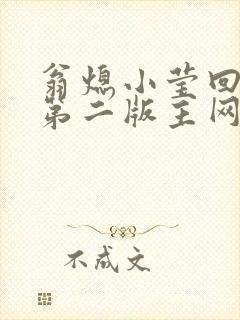 翁熄小莹回
第二版主网
不成文